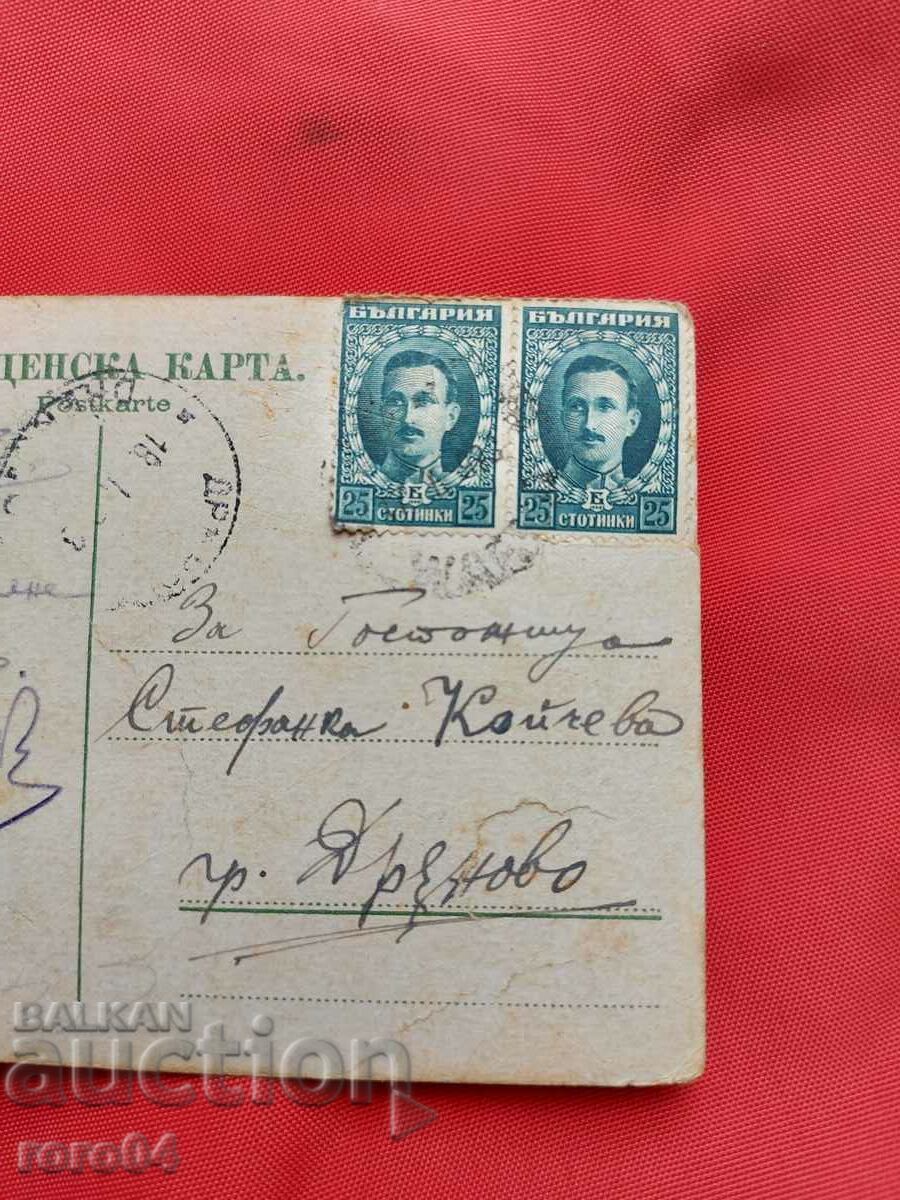 БЪЛГАРИЯ БЪЛГАРИЯ
25 СТОТИНКИ 25 25 СТОТИНКИ 25
ЩЕНСКА КАРТА.
Postkarte
18
За Госпожица
Стефанка Койчева
гр. Дрѣново
BALKAN
auction
roro04